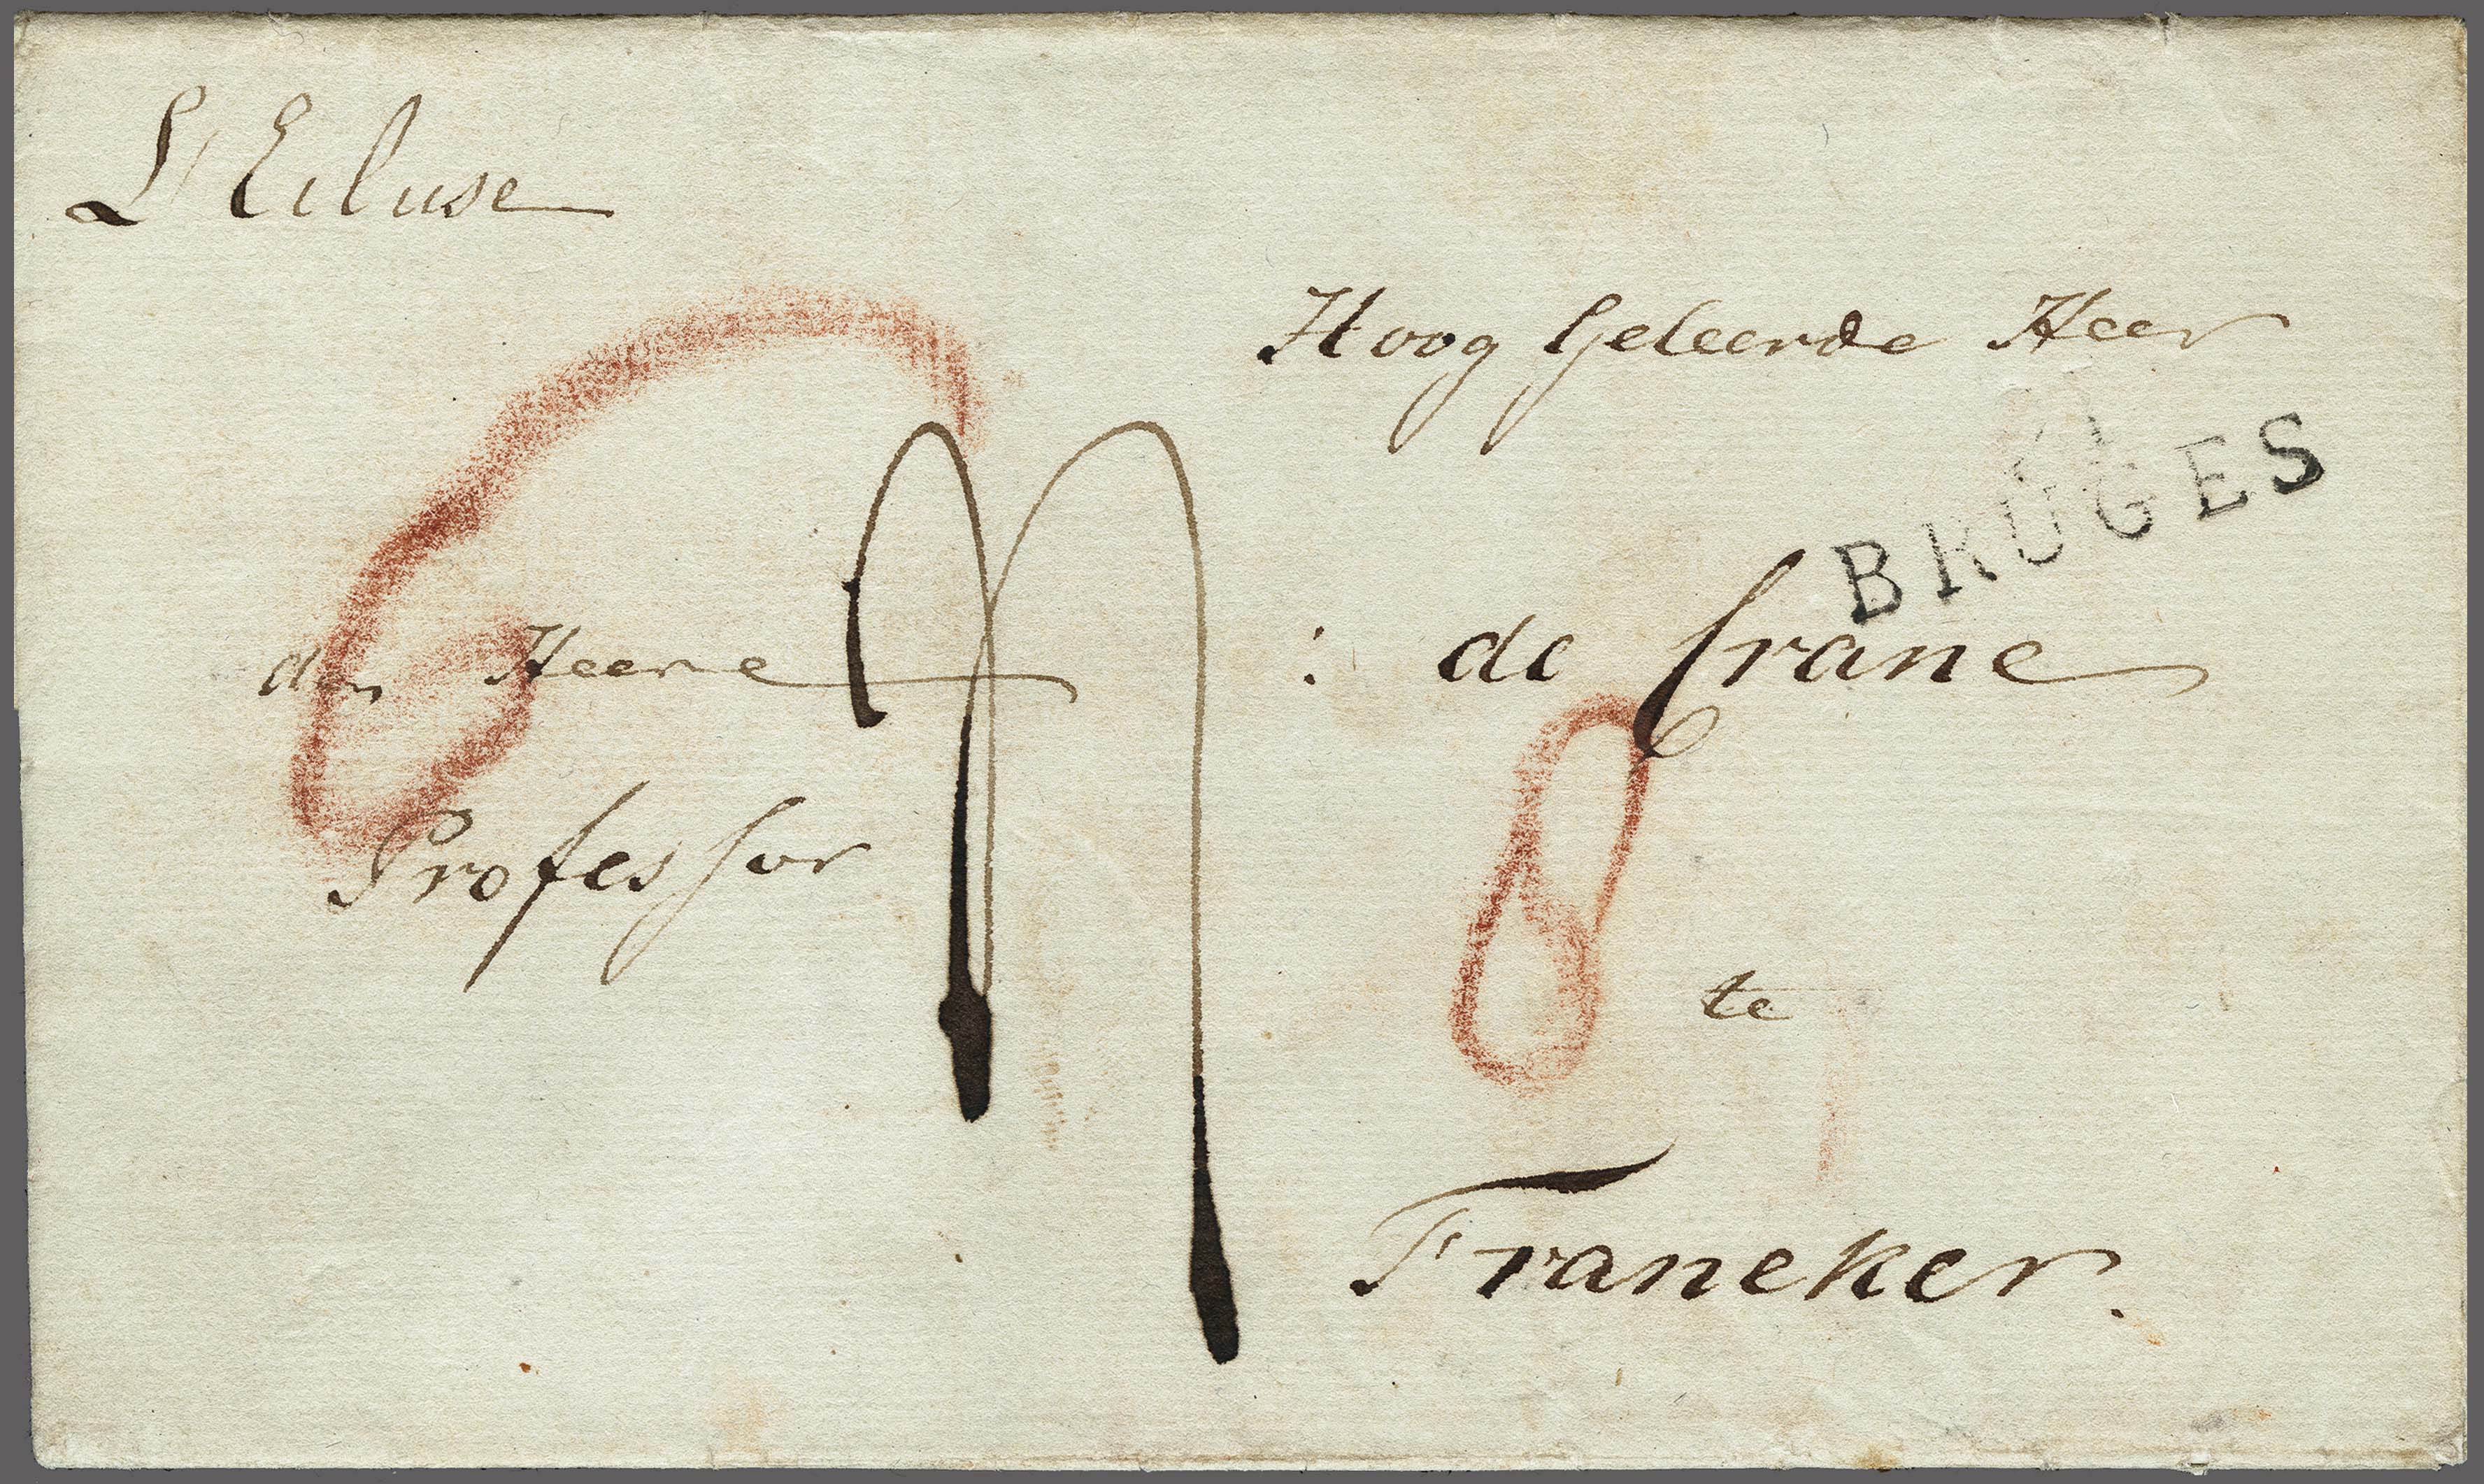 L'Ecluse
Hoog Geleerde Heer
91
BRUGES
den Heere : de Crane
Professor
8
te
Franeker.